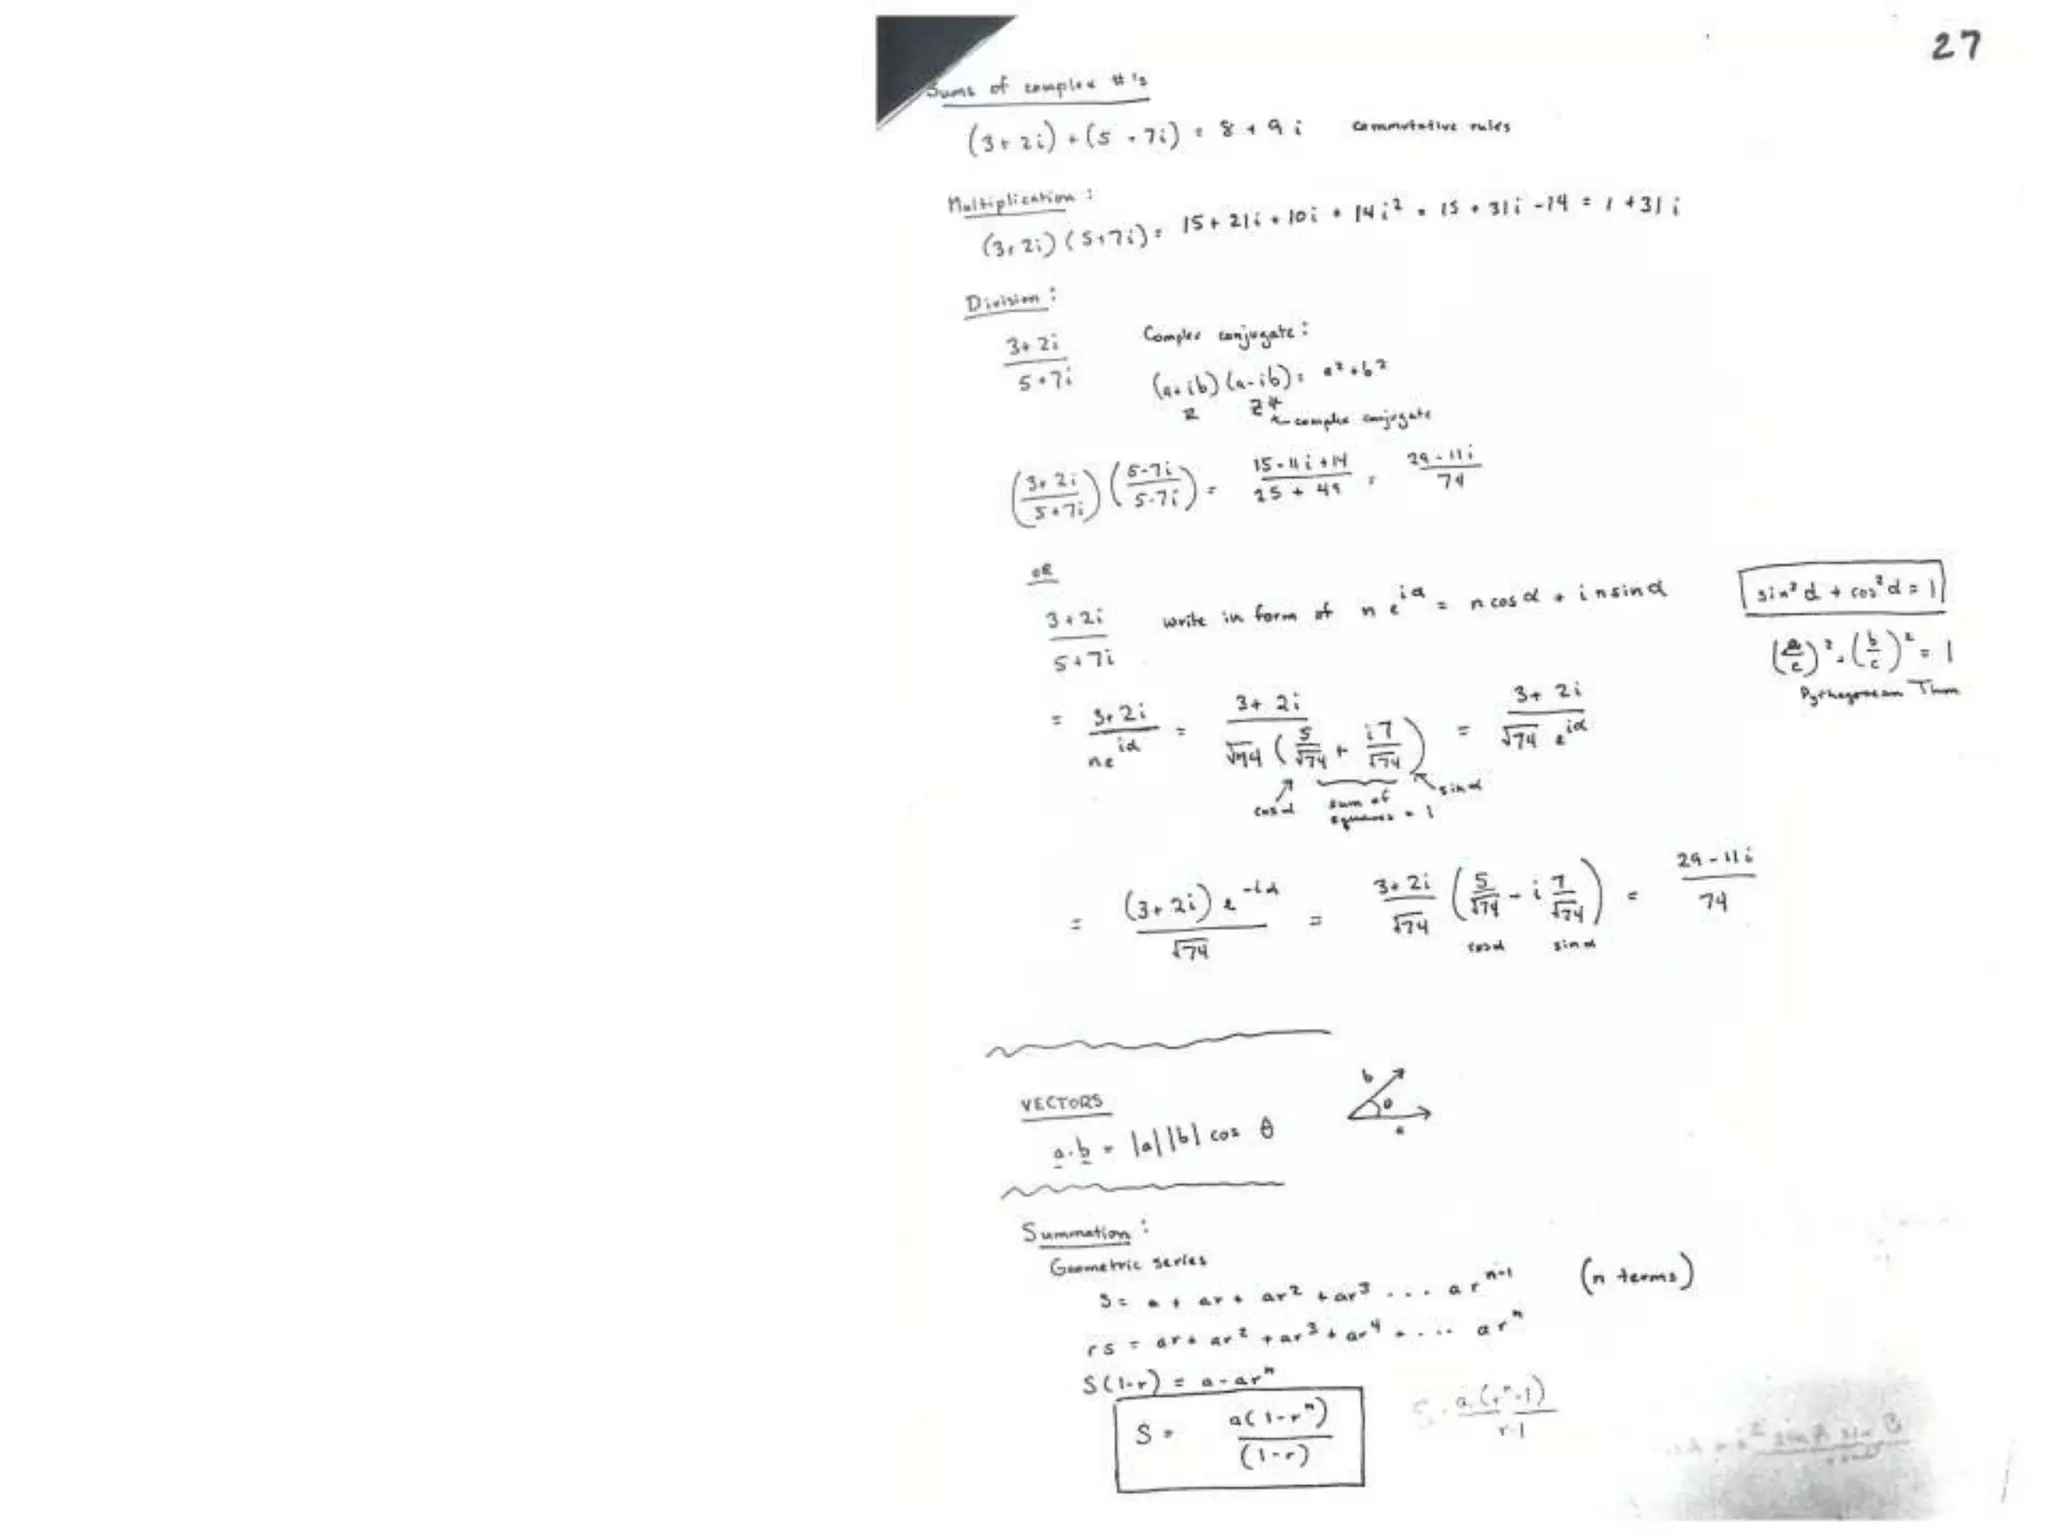 27
Sums of complex #'s
(3+2i) + (5+7i) = 8+9i commutative rules
Multiplication:
(3+2i)(5+7i) = 15+21i+10i+14i² = 15+31i-14 = 1+31i
Division:
3+2i / 5+7i
Complex conjugate:
(a+ib)(a-ib) = a²+b²
z z* ← complex conjugate
(3+2i / 5+7i)(5-7i / 5-7i) = 15-11i+14 / 25+49 = 29-11i / 74
OR
3+2i / 5+7i write in form of n e^{iα} = n cos α + i n sin α
sin²α + cos²α = 1
(a/c)² + (b/c)² = 1
Pythagorean Thm
= 3+2i / ne^{iα} = 3+2i / √74 (5/√74 + i7/√74) = 3+2i / √74 e^{iα}
cos α sum of squares = 1 sin α
= (3+2i) e^{-iα} / √74 = 3+2i / √74 (5/√74 - i 7/√74) = 29-11i / 74
cos α sin α
VECTORS
a·b = |a||b| cos θ
b θ a
Summation:
Geometric series
S = a + ar + ar² + ar³ ... ar^{n-1} (n terms)
rs = ar + ar² + ar³ + ar⁴ + ... ar^n
S(1-r) = a - ar^n
S = a(1-r^n) / (1-r)
S = a(r^n-1) / r-1